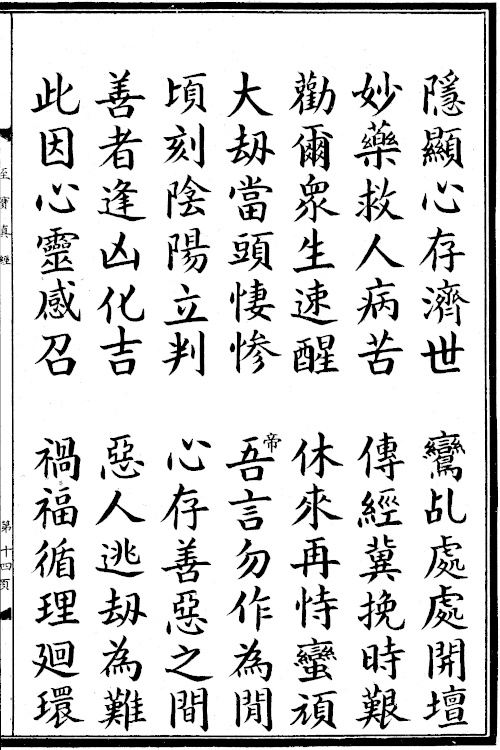 隱顯心存濟世　鸞乩處處開壇
妙藥救人病苦　傳經冀挽時艱
勸爾眾生速醒　休來再恃蠻頑
大劫當頭悽慘　吾帝言勿作為閒
頃刻陰陽立判　心存善惡之間
善者逢凶化吉　惡人逃劫為難
此因心靈感召　禍福循理廻環
至寶真經　第十四頁